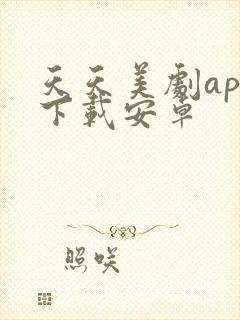 天天美劇ap
下載安卓
照咲